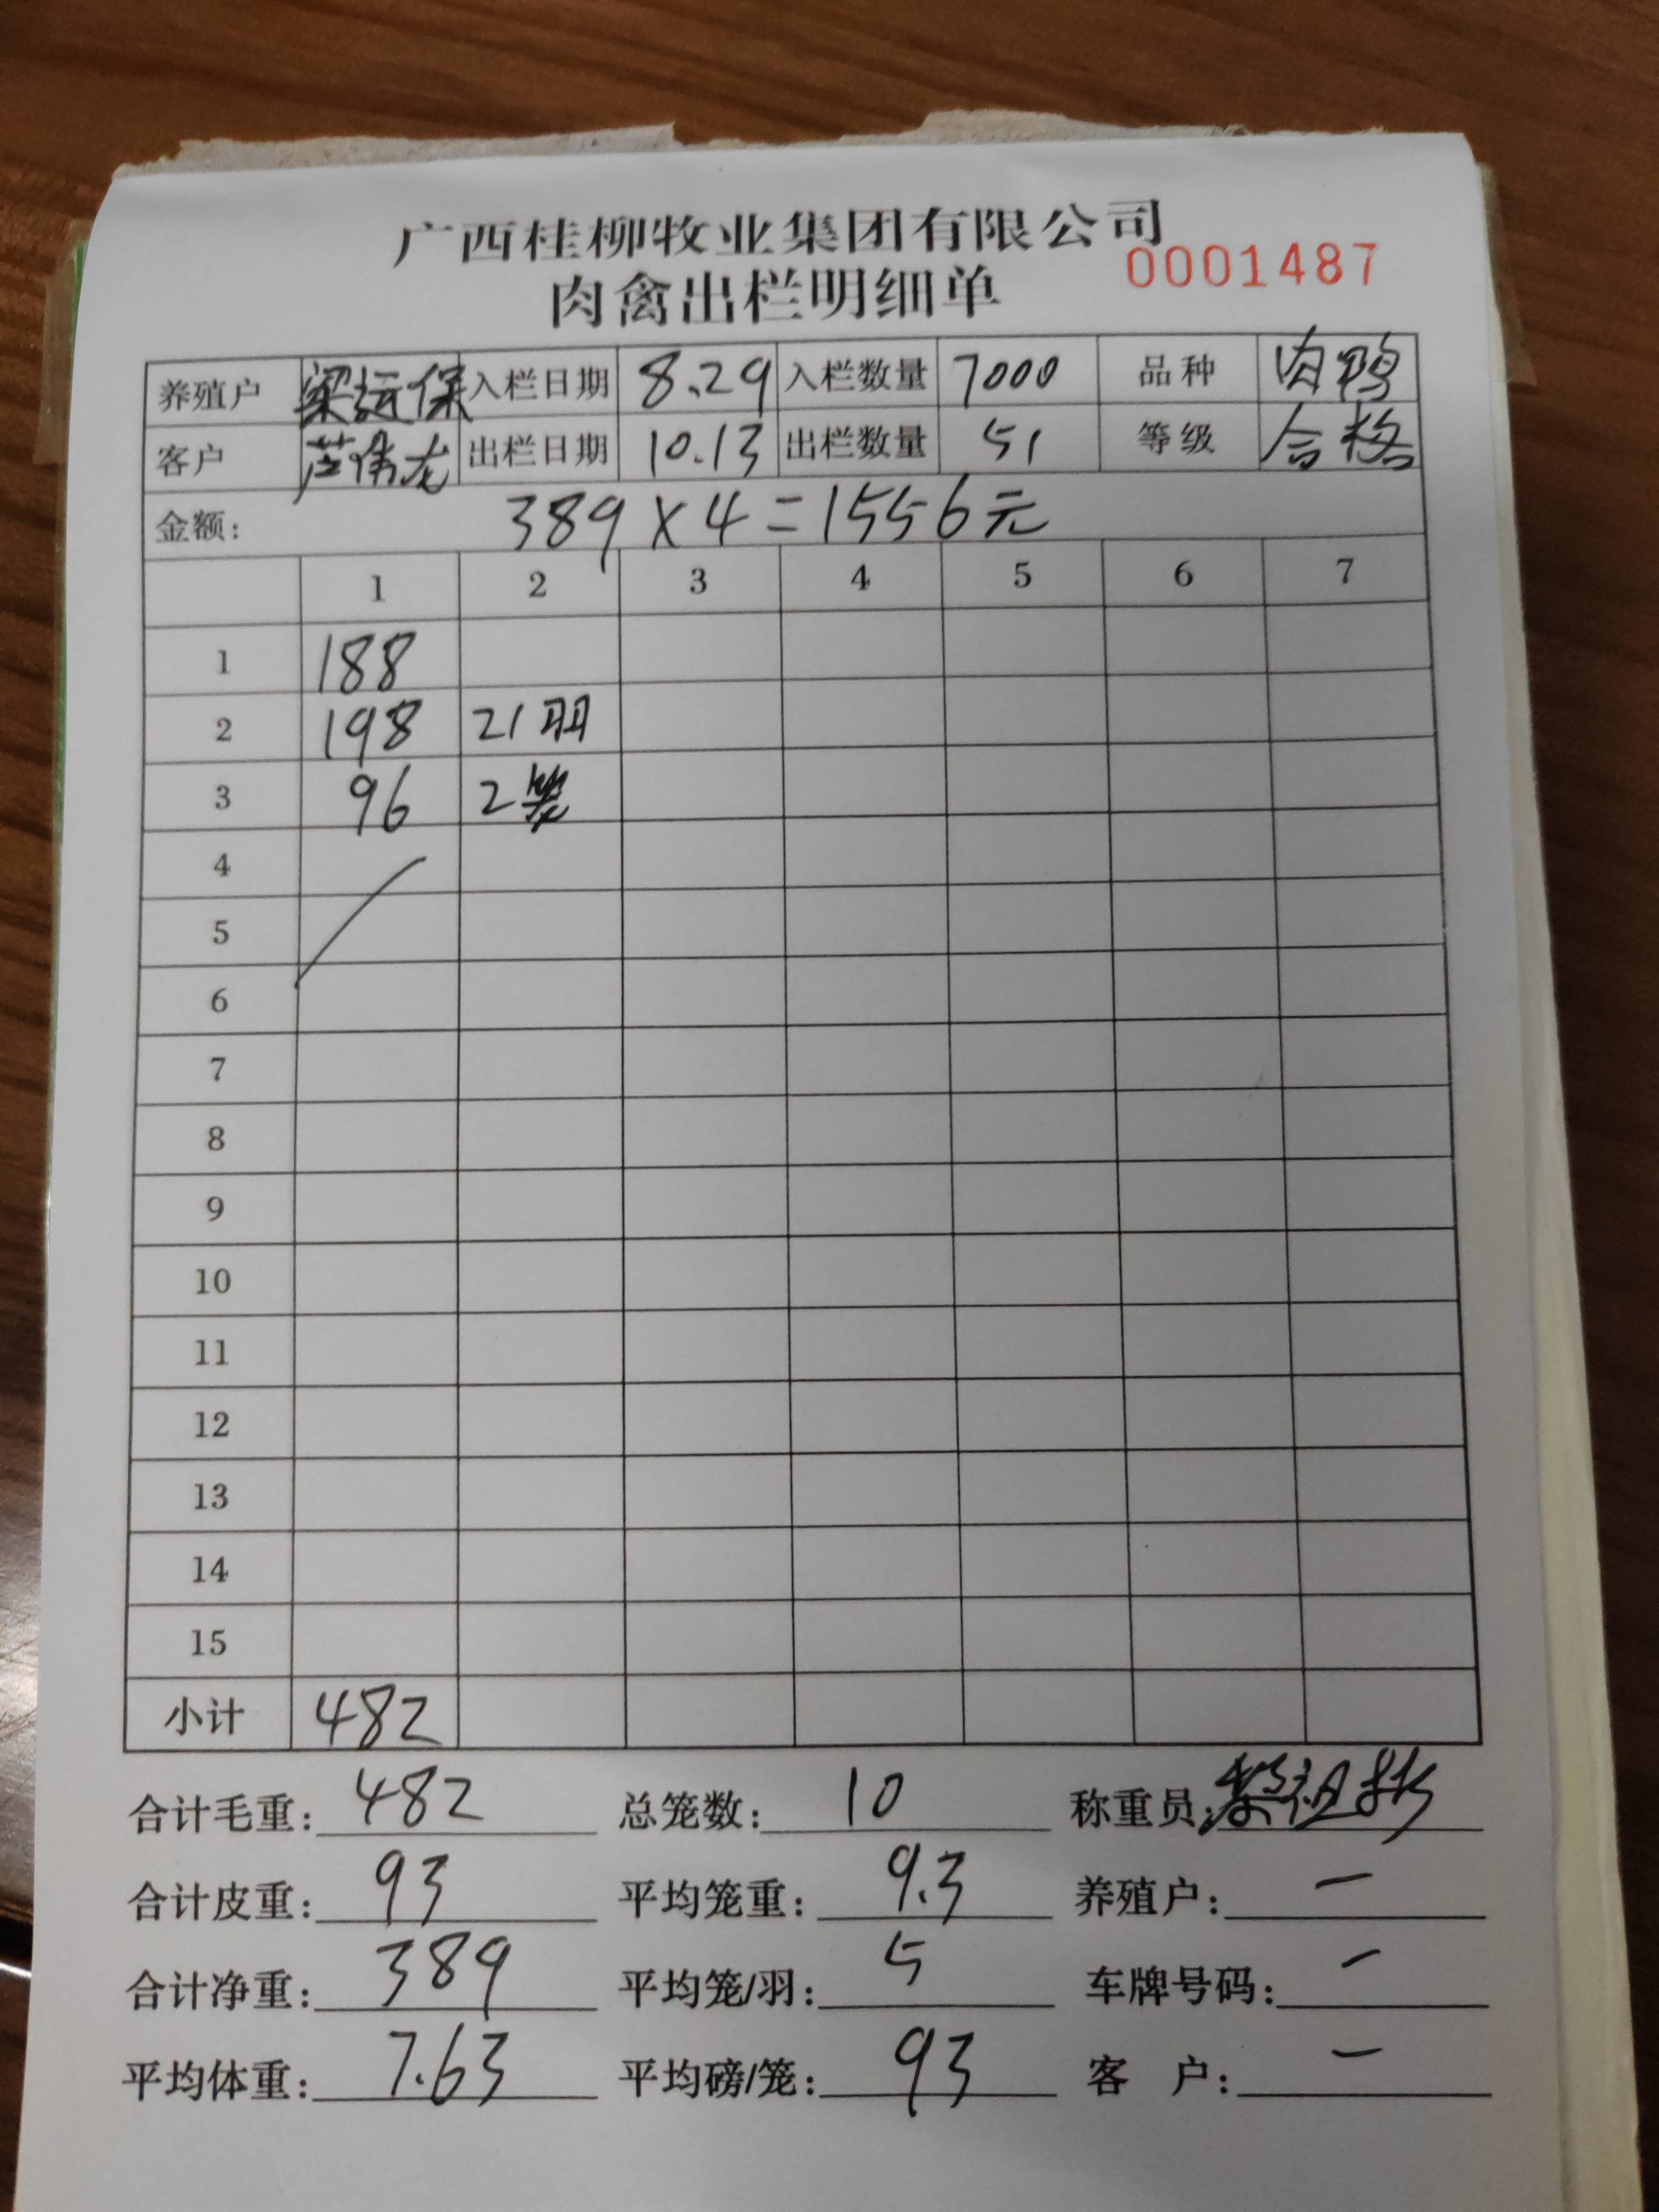 广西桂柳牧业集团有限公司
肉禽出栏明细单 0001487
养殖户 梁运保 入栏日期 8.29 入栏数量 7000 品种 肉鸭
客户 芦伟龙 出栏日期 10.13 出栏数量 51 等级 合格
金额: 389×4=1556元
1 2 3 4 5 6 7
1 188
2 198 21羽
3 96 2
4
5
6
7
8
9
10
11
12
13
14
15
小计 482
合计毛重: 482 总笼数: 10 称重员:
合计皮重: 93 平均笼重: 9.3 养殖户: 一
合计净重: 389 平均笼/羽: 5 车牌号码: 一
平均体重: 7.63 平均磅/笼: 93 客户: 一